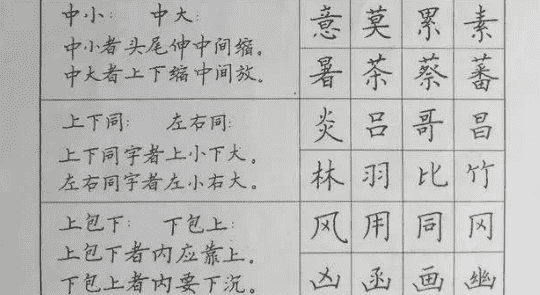 中小: 中大:
中小者头尾伸中间缩。
中大者上下缩中间放。
意莫累素
暑茶蔡蕃
上下同: 左右同:
上下同字者上小下大。
左右同字者左小右大。
炎吕哥昌
林羽比竹
上包下: 下包上:
上包下者内应靠上。
下包上者内要下沉。
风用同冈
凶函画幽